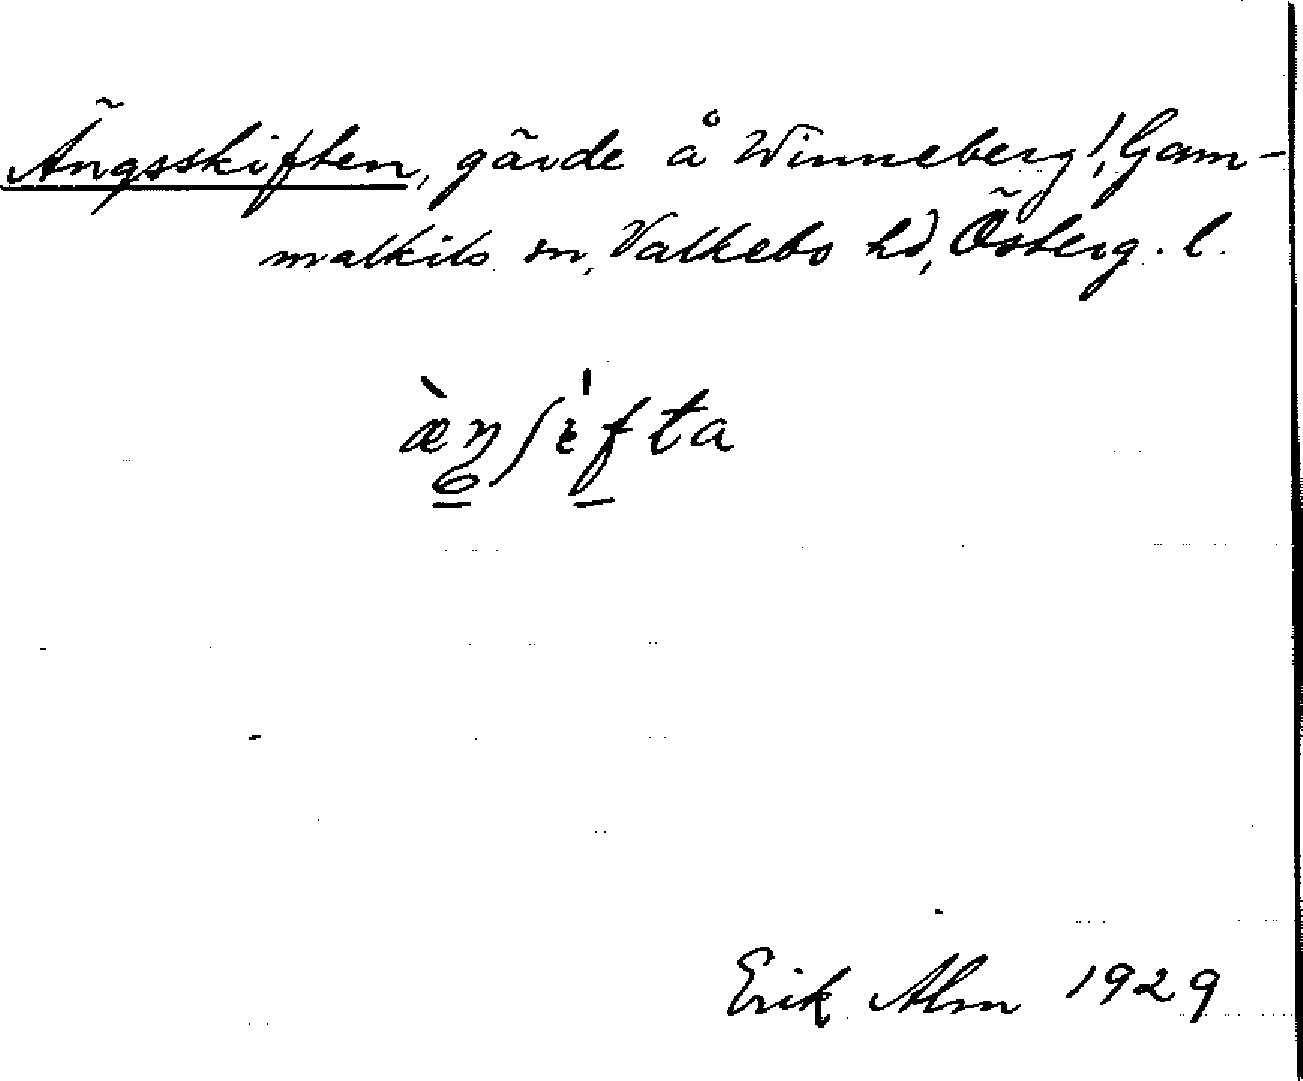 Ängsskiften, gärde å Winneberg!, Gam-
malkils sn, Valkebo hd, Österg. l.
æ̀ŋʃɪ̍fta
Erik Alm 1929